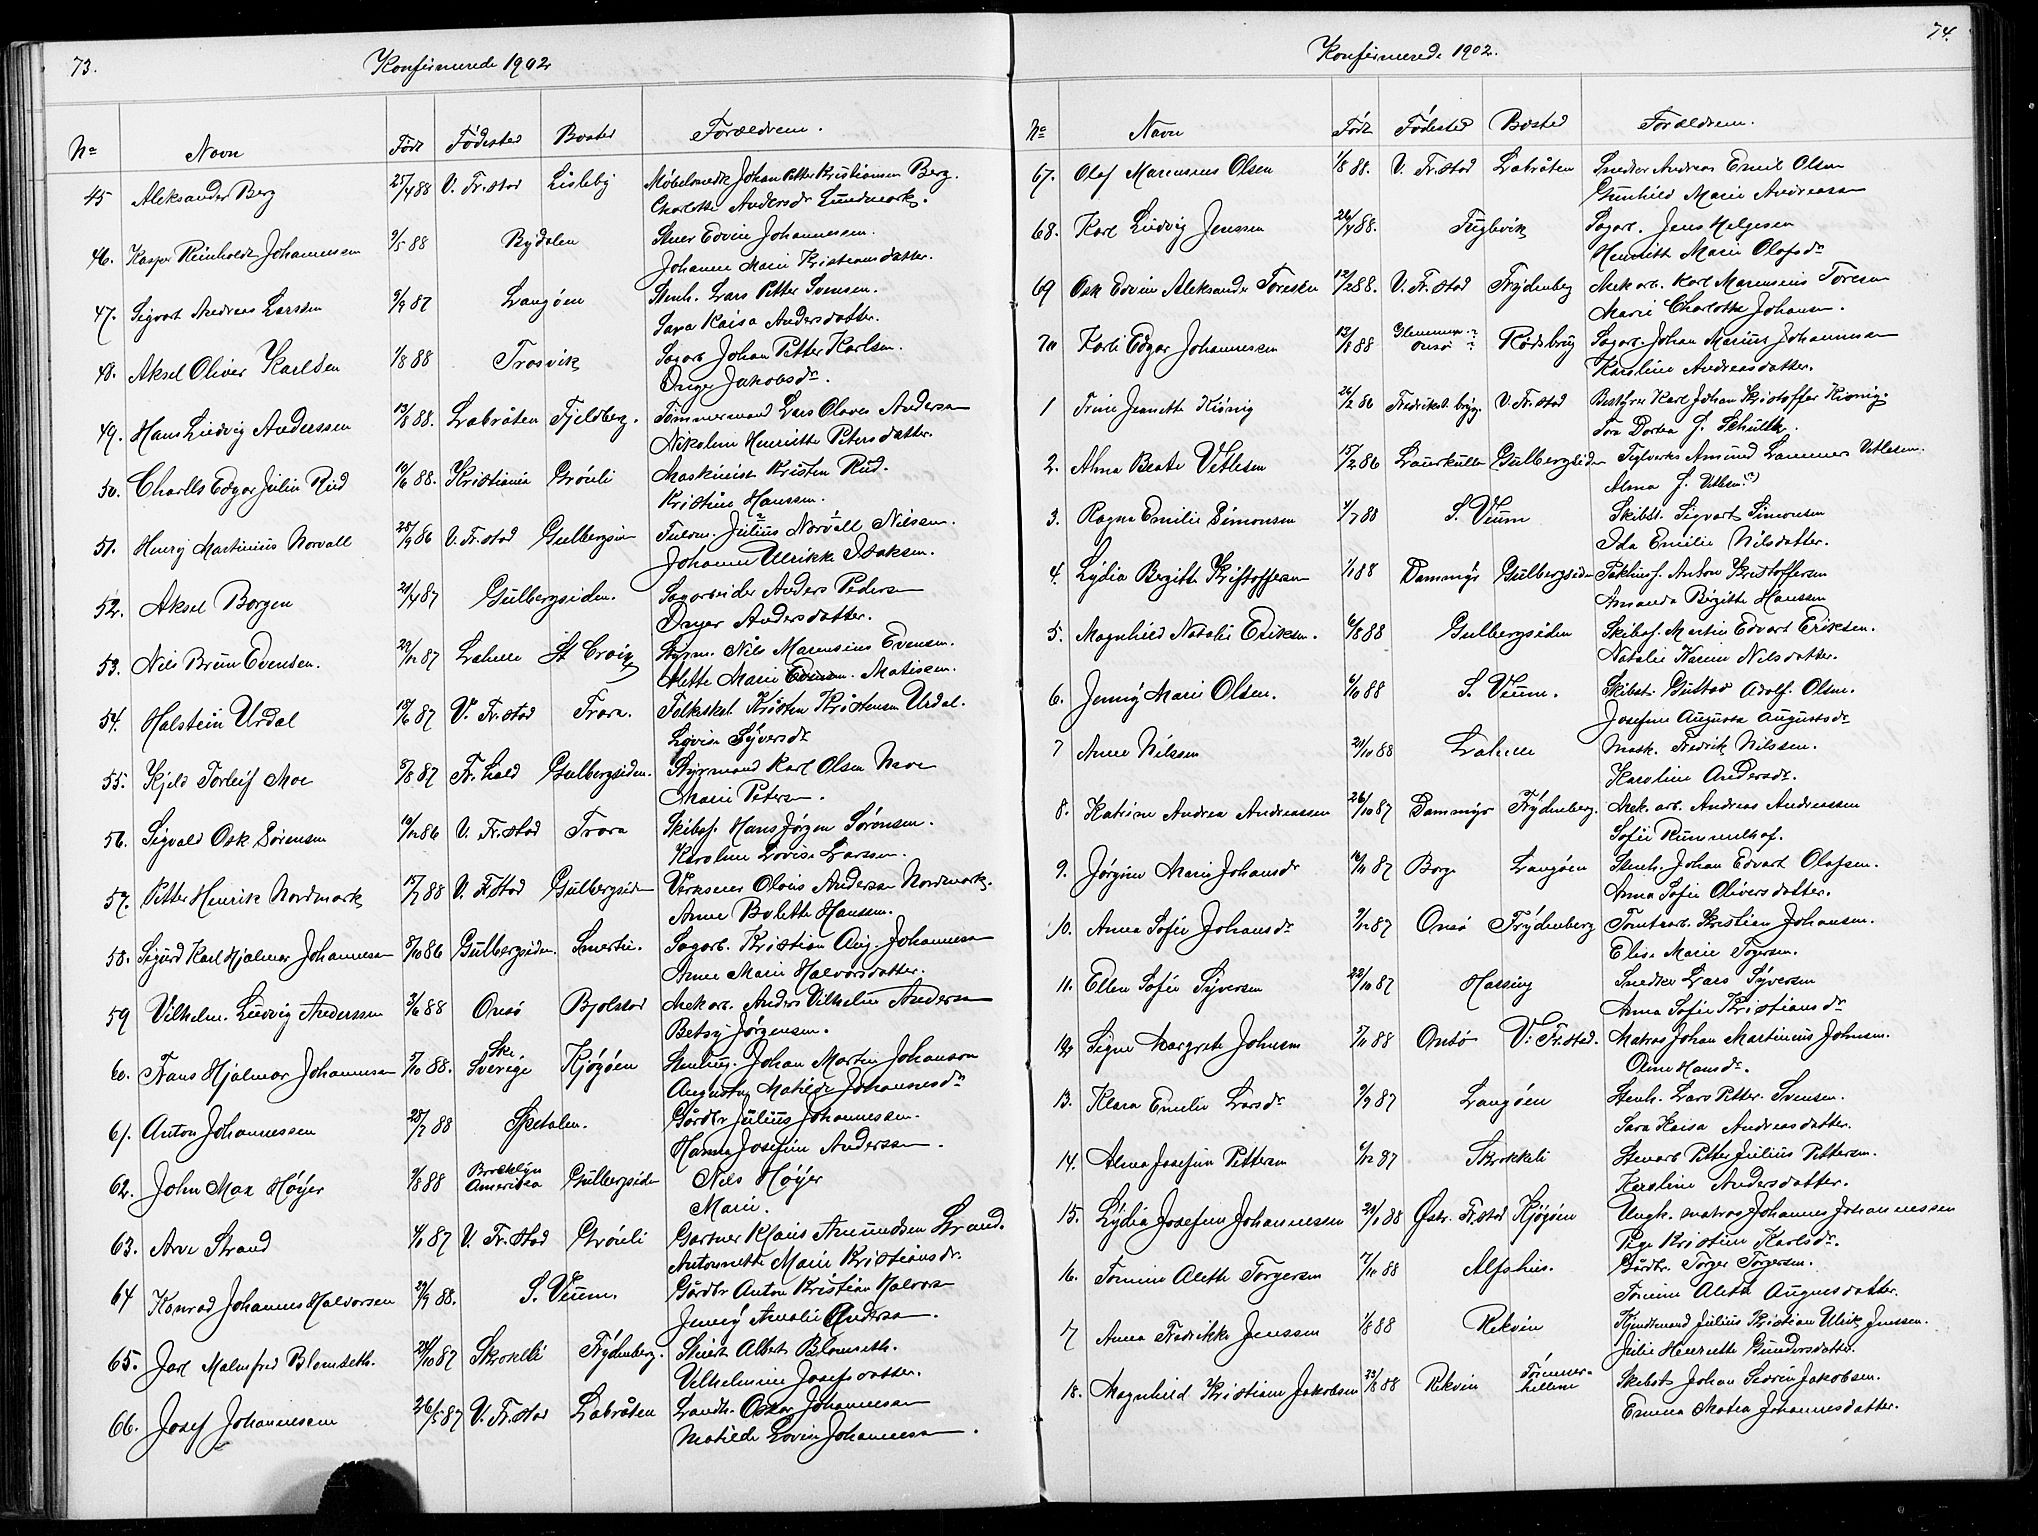 73.
Konfirmerede 1902
No Navn Født Fødested Bosted Forældrene.
45 Aleksander Berg 25/4 88 V. Fr.stad Lisleby Møbelsnedk Johan Petter Kristiansen Berg.
Charlotte Andersdr Lundmark.
46. Kasper Reinholdt Johannessen 9/5 88 Rydalen Stuer Edvin Johannessen.
Johanne Marie Kristiansdatter.
47. Sigvart Andreas Larssen 9/9 87 Langøen Stenh. Lars Petter Svensen.
Sara Kaisa Andersdatter.
48. Aksel Oliver Karlsen 1/8 88 Trosvik Sagarb Johan Petter Karlsen.
Inger Jakobsdr.
49. Hans Ludvig Anderssen 13/8 88. Labråten Fjeldberg. Tømmermand Lars Olaves Andersen
Nikoline Henriette Petersdatter.
50. Charlls Edgar Julin Rud 10/6 88. Kristiania Grönli Maskinist Kristen Rud.
Kristine Hanssen.
51. Henry Martinius Norvall 28/9 86 V. Fr.stad Gulbergsiden Tulom. Julius Norvall Nilssen.
Johanne Ulrikke Isaksen.
52. Aksel Borgen 21/4 87 Gulbergsiden. Sagarbeider Anders Pedersen
Inger Andersdatter.
53. Nils Brun Evensen. 29/12 87 Lahelle St Croix Styrm. Nils Marensius Evensen.
Mette Marie Matisen.
54. Halstein Urdal 18/6 87 V. Fr.stad Trara. Folkeskl. Kristen Kristensen Urdal.
Lovise Syversdr
55. Kjeld Torleif Moe 5/8 87 Fr.hald Gulbergsiden. Styrmand Karl Olsen Moe
Marie Petersen.
56. Sigvald Osk. Sørensen 19/12 86 V. Fr.stad Trara Skibsf. Hans Jørgen Sørensen.
Karoline Lovise Larssen.
57. Petter Henrik Nordmark 17/7 88 V. Fr.stad Gulbergsiden Værkseier Olaus Andersen Nordmark.
Anne Bolette Hanssen.
58. Sigurd Karl Hjalmar Johannessen 8/10 86 Gulbergsiden. Smertu. Sagarb. Kristian Aug. Johannessen
Anne Marie Halvorsdatter.
59 Vilhelm. Ludvig Anderssen 3/6 88 Onsø Bjølstad Mekarb. Anders Vilhelm Andersen
Betsy Jørgensen.
60. Frans Hjalmar Johannessen 5/10 88. Ske Sverige Kjøgøen Stenhug. Johan Martin Johansson
Augusta Matilde Johannesdr
61. Anton Johannessen 28/7 88 Spetalen. Gårdbr Julius Johannessen.
Hanna Josefine Anderssen.
62. John Max Høyer 9/8 88 Brooklyn Amerika Gulbergsiden Nils Høyer
Marie.
63. Arve Strand 4/10 87 V. Fr.stad Grönli Gartner Klaus Amundsen Strand.
Antonette Marie Kristiansdr.
64 Konrad Johannes Halvorsen 29/9 88. S. Veum. Gårdbr Anton Kristian Halvorsen
Jenny Amalie Andersen.
65. Jarl Malmfred Blomseth. 29/10 87 Skrokkeli Frydenberg. Stuert Albert Blomseth.
Vilhelmine Josefsdatter.
66. Josef Johannessen 26/5 87 V. Fr.stad Labråten Landh. Oskar Johannessen
Matilde Lovise Johannessen.
74.
Konfirmerede 1902.
No Navn Født Fødested Bosted Forældrene.
67. Olaf Marensius Olsen 1/8 88. V. Fr.stad Labråten Smedkr Andreas Emil Olsen
Gunhild Marie Andreassen
68. Karl Ludvig Jenssen 26/4 88. Fuglevik Sagarb. Jens Helgesen
Henriette Marie Olafsdr
69 Osk Edvin Aleksander Toresen 12/2 88. V. Fr.stad Frydenberg Mekarb. Karl Marensius Toresen
Marie Charlotte Johansen.
70 Karli Edgar Johannessen 12/8 88 Glemmen? Onsø? Rødsbrug Sagarb. Johan Marius Johannessen
Karoline Andreasdatter.
1 Trine Jeanette Kiønig 26/2 86 Fredrikst. bryg. V. Fr.stad Bestyrer Karl Johan Kristoffer Kiønig.
Tora Dortea J. Schultz.
2. Alma Beate Vetlesen 15/2 86 Laurkullen Gulbergsiden Teglverks Amund Lammers Vetlesen.
Alma J. Vetlesen (?)
3. Ragna Emilie Simonsen 4/7 88 S. Veum Skibst. Sigvart Simonsen
Ida Emilie Nilsdatter.
4. Lydia Bergitte Kristoffersen 1/1 88 Dammyr Gulbergsiden Anton Kristoffersen
Amanda Birgitte Hanssen
5. Magnhild Natalie Eriksen. 6/8 88 Gulbergsiden Skibsf. Martin Edvart Eriksen.
Natalie Karen Nilsdatter.
6. Jenny Marie Olsen. 6/10 88 S. Veum. Skibst. Gustav Adolf Olsen.
Josefine Augusta Augustsdr
7 Anna Nilssen 21/10 88 Lahelle Mask. Fredrik Nilssen.
Karoline Andersdr.
8. Katrine Andrea Andreassen 26/10 87 Dammyr Frydenberg. Mek. arb. Andreas Andreassen
Sofie Rummelhof.
9. Jørgine Marie Johansdr 16/11 87 Borge Langøen Stenh. Johan Edvart Olafsen.
Anna Sofie Oliversdatter.
10. Anna Sofie Johansdr 9/12 87 Onsø Frydenberg Tomtearb. Kristian Johansen.
Elise Marie Torgersen.
11. Ellen Sofie Syversen 22/10 87 Hassing Snedker Lars Syversen
Anna Sofie Kristiansdr
12 Signe Margrete Johnsen 7/11 88 Onsø V. Fr.stad. Matros Johan Martinius Johnsen.
Oline Hansdr.
13. Klara Emilie Larsdr 9/9 87 Langøen Stenh. Lars Petter Svensen.
Sara Kaisa Andreasdatter.
14. Alma Josefine Pettersen 6/12 87 Skrokkeli Stenarb Petter Julius Pettersen.
Karoline Andersdatter.
15. Lydia Josefine Johannessen 21/1 88 Østr. Fr.stad Kjøgøen Ungk. matros Johannes Johannessen
Pige Kristine Karlsdr.
16. Tomine Alette Torgersen 7/10 88 Alfshus. Gårdbr. Torger Torgersen.
Tomine Aleta Augunsdatter.
17 Anna Fredrikke Jenssen 1/8 88 Rekvin Kjendtmand Julius Kristian Ulrik Jenssen.
Julie Henriette Gundersdatter.
18. Magnhild Kristiane Jakobsen 30/8 88 Rekvin Tømmerhellen Skibst Johan Severin Jakobsen.
Emma Matea Johannesdatter.